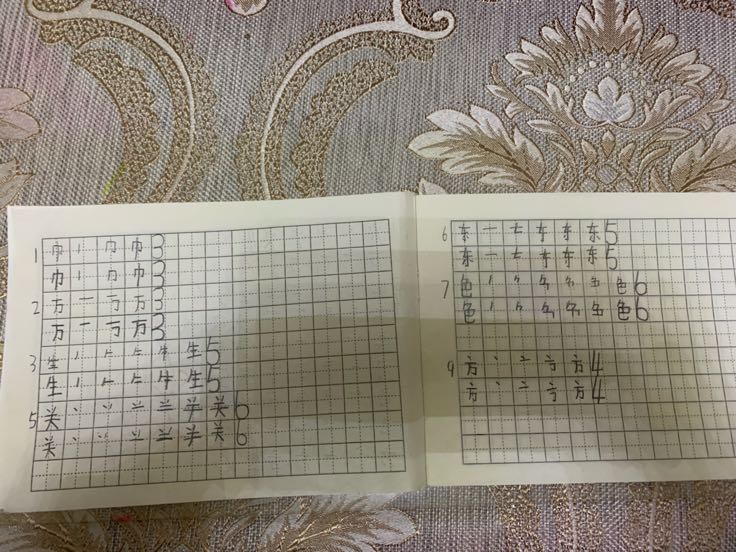 1 巾 丨 冂 巾 3
巾 丨 冂 巾 3
2 万 一 丂 万 3
万 一 丂 万 3
3 生 丿 𠂉 生 5
生 丿 𠂉 牛 生 5
5 关 丶 丷 䒑 关 6
关 丶 丷 䒑 关 6
6 东 一 东 5
东 一 东 5
7 色 丿 𠂊 色 6
色 丿 𠂊 色 6
9 方 丶 亠 方 4
方 丶 亠 方 4